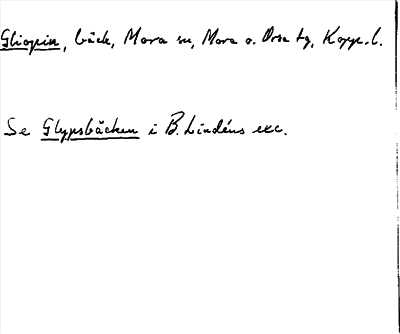 Gliopin, bäck, Mora sn, Mora o. Orsa tg, Kopp. l.
Se Glypsbäcken i B. Lindéns exc.